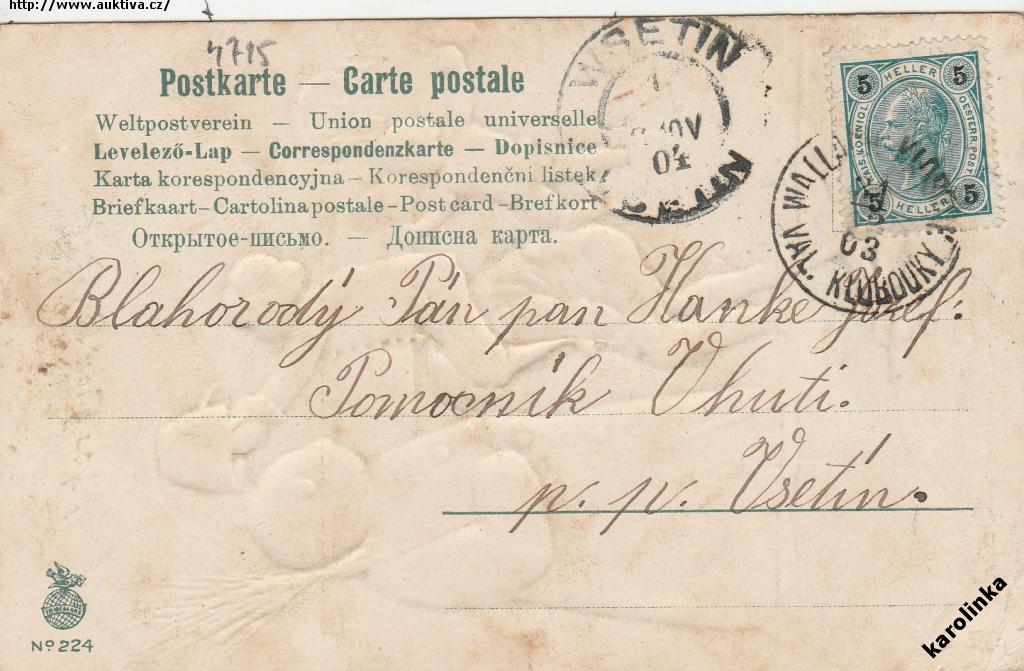 http://www.auktiva.cz/
4715
Postkarte — Carte postale
Weltpostverein — Union postale universelle
Levelező-Lap — Correspondenzkarte — Dopisnice
Karta korespondencyjna — Korespondenčni listek
Briefkaart — Cartolina postale — Post card — Brefkort
Открытое-письмо. — Дописна карта.
WSETIN
NOV
04
5 HELLER 5
KAIS. KOENIGL. OESTERR. POST
5 HELLER 5
WALL.
03
KLOBOUKY
Blahorodý Pán pan Hanke Josef:
Pomocník Vhuti.
p. p. Vsetín.
TRADEMARK
No 224
karolinka